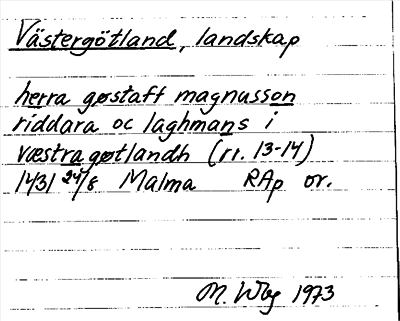 Västergötland, landskap
herra gøstaff magnusson
riddara oc laghmans i
væstragøtlandh (rr. 13-14)
1431 24/8 Malma RAp or.
M. Wbg 1973